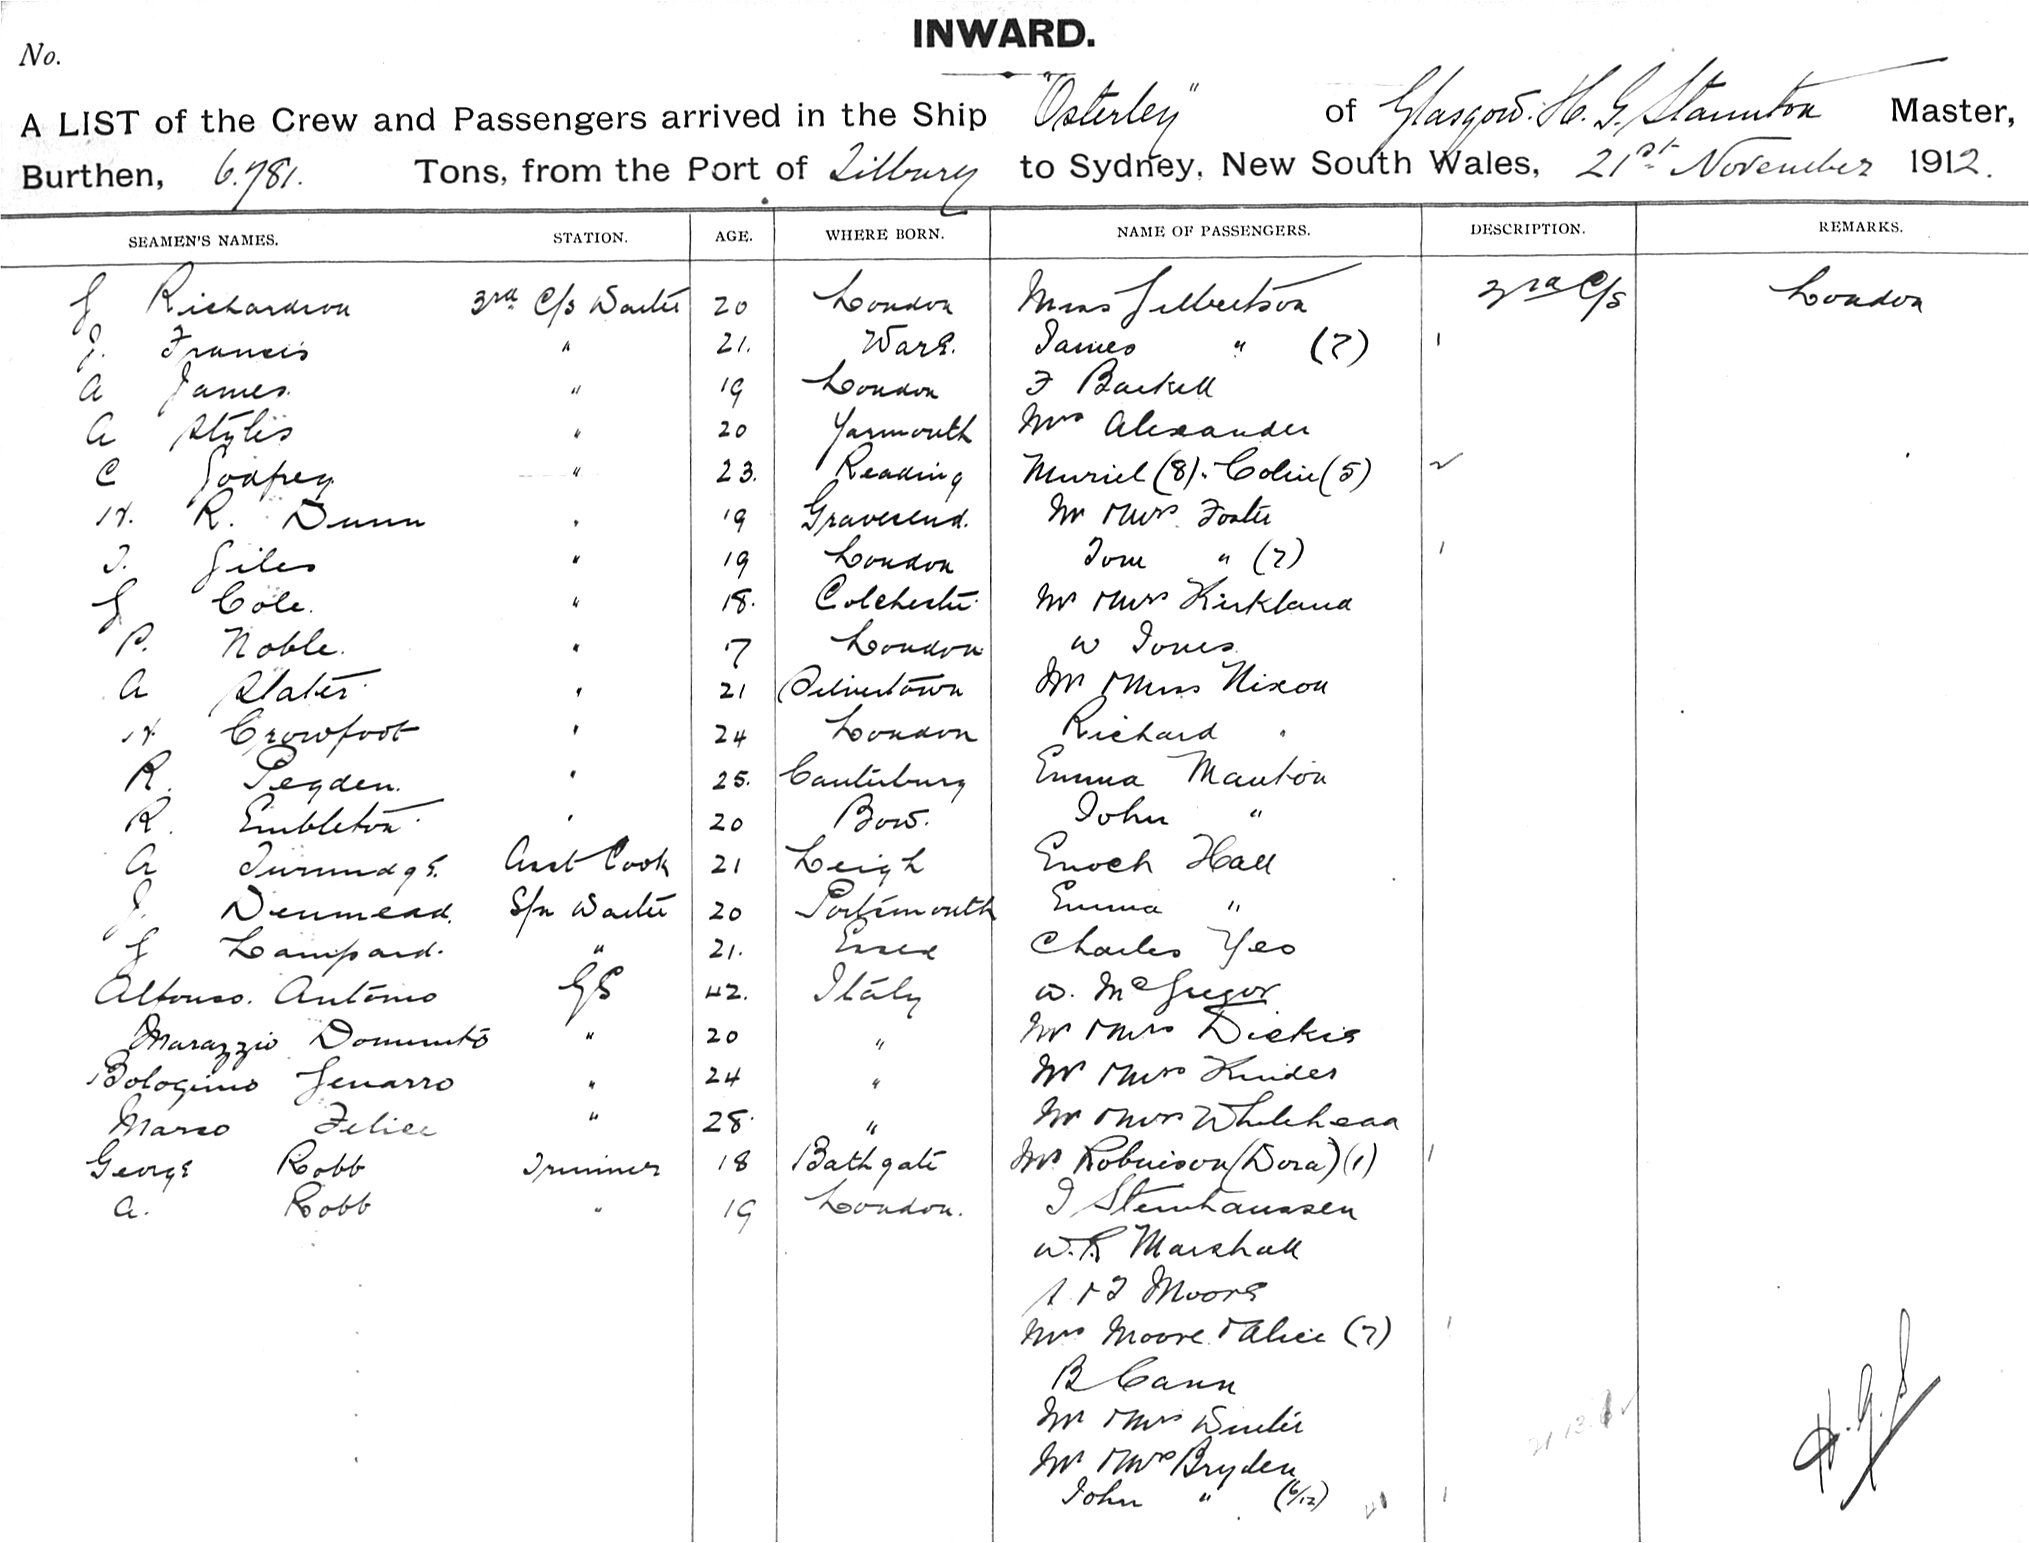 INWARD.
No.
A LIST of the Crew and Passengers arrived in the Ship "Osterley" of Glasgow. H. G. Staunton Master,
Burthen, 6.781. Tons, from the Port of Tilbury to Sydney, New South Wales, 21st November 1912.
SEAMEN'S NAMES. STATION. AGE. WHERE BORN. NAME OF PASSENGERS. DESCRIPTION. REMARKS.
G Richardson 3rd C/s Waiter 20 London Miss Gilbertson 3rd C/s London
J. Francis " 21. Ware. James " (7) 1
A James " 19 London F Backell
A Styles " 20 Yarmouth Mrs Alexander
C Godfrey " 23. Reading Muriel (8). Colin (5) 2
H. R. Dunn " 19 Gravesend. Mr & Mrs Foster
T. Giles " 19 London Tom " (7) 1
G Cole. " 18. Colchester Mr & Mrs Kirkland
P. Noble. " 17 London W Jones
A Slater " 21 Silvertown Mr & Miss Nixon
H Crowfoot " 24 London Richard "
R. Pegden. " 25. Canterbury Emma Manton
R. Embleton " 20 Bow. John "
A Turmidge. Asst Cook 21 Leigh Enoch Hall
J. Denmead. S/n Waiter 20 Portsmouth Emma "
G Lampard. " 21. Essex Charles Yeo
Alfonso. Antonio GS 42. Italy W. McGregor
Marazzio " 20 " Mr & Mrs Dickie
Bologinio Genarro " 24 " Mr & Mrs Kinder
Marso Felice " 28. " Mr & Mrs Whitehead
George Robb Trimmer 18 Bathgate Mrs Robinson (Dora) (1) 1
A. Robb " 19 London. J Steinhaussen
W. R Marshall
& J Moore
Mrs Moore & Alice (7) 1
B Cann
Mr & Mrs Winter
Mr & Mrs Bryden
John " (6/12) 1
H. G. S